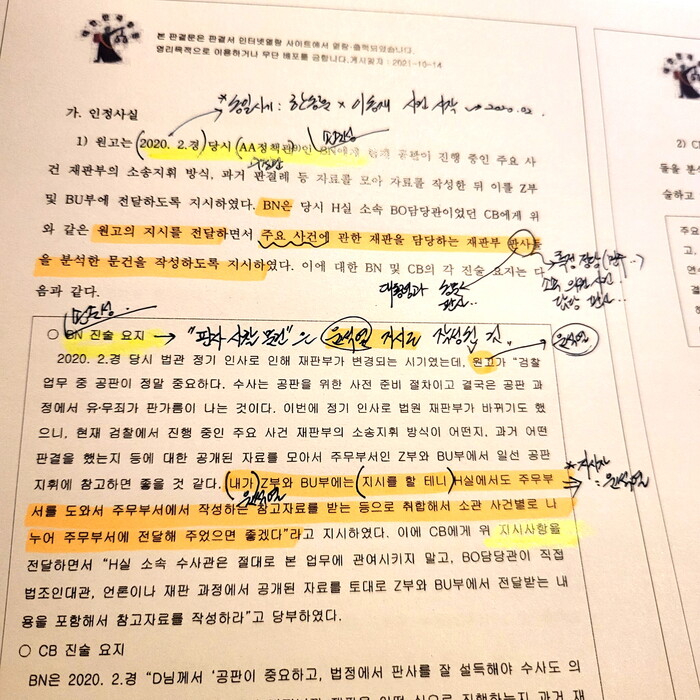 본 판결문은 판결서 인터넷열람 사이트에서 열람·출력되었습니다.
영리목적으로 이용하거나 무단 배포를 금합니다.게시일자 : 2021-10-14
가. 인정사실
1) 원고는 (2020. 2.경) 당시 (AA정책관)이던 BN에게 현재 공판이 진행 중인 주요 사
건 재판부의 소송지휘 방식, 과거 판결례 등 자료를 모아 자료를 작성한 뒤 이를 Z부
및 BU부에 전달하도록 지시하였다. BN은 당시 H실 소속 BO담당관이었던 CB에게 위
와 같은 원고의 지시를 전달하면서 주요 사건에 관한 재판을 담당하는 재판부 판사들
을 분석한 문건을 작성하도록 지시하였다. 이에 대한 BN 및 CB의 각 진술 요지는 다
음과 같다.
○ BN 진술 요지 → "판사 사찰 문건"은 윤석열 지시로 작성된 것.
2020. 2.경 당시 법관 정기 인사로 인해 재판부가 변경되는 시기였는데, 원고가 "검찰
업무 중 공판이 정말 중요하다. 수사는 공판을 위한 사전 준비 절차이고 결국은 공판 과
정에서 유·무죄가 판가름이 나는 것이다. 이번에 정기 인사로 법원 재판부가 바뀌기도 했
으니, 현재 검찰에서 진행 중인 주요 사건 재판부의 소송지휘 방식이 어떤지, 과거 어떤
판결을 했는지 등에 대한 공개된 자료를 모아서 주무부서인 Z부와 BU부에서 일선 공판
지휘에 참고하면 좋을 것 같다. (내가) Z부와 BU부에는 (지시를 할 테니) H실에서도 주무부
서를 도와서 주무부서에서 작성하는 참고자료를 받는 등으로 취합해서 소관 사건별로 나
누어 주무부서에 전달해 주었으면 좋겠다"라고 지시하였다. 이에 CB에게 위 지시사항을
전달하면서 "H실 소속 수사관은 절대로 본 업무에 관여시키지 말고, BO담당관이 직접
법조인대관, 언론이나 재판 과정에서 공개된 자료를 토대로 Z부와 BU부에서 전달받는 내
용을 포함해서 참고자료를 작성하라"고 당부하였다.
○ CB 진술 요지
BN은 2020. 2.경 "D님께서 '공판이 중요하고, 법정에서 판사를 잘 설득해야 수사도 의